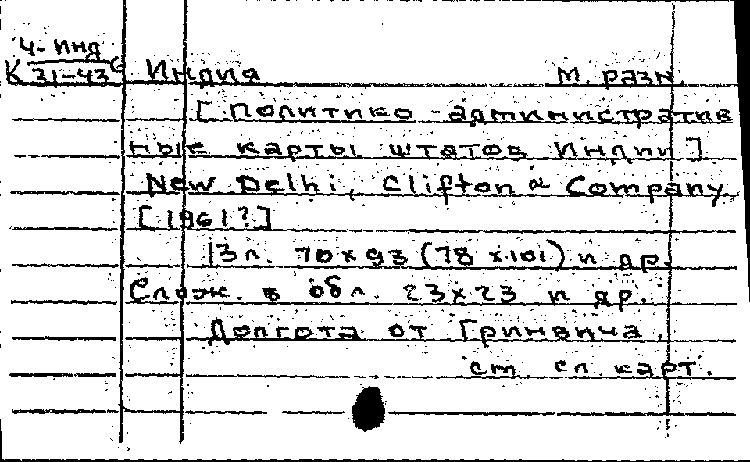 4-Инд
К 31-43 Индия м. разн.
[Политико-административ
ные карты штатов Индии]
New Delhi, Clifton & Company,
[1961?]
13 л. 70×93 (78×101) и др.
Слож. в обл. 23×23 и др.
Долгота от Гринвича.
см. сл. карт.